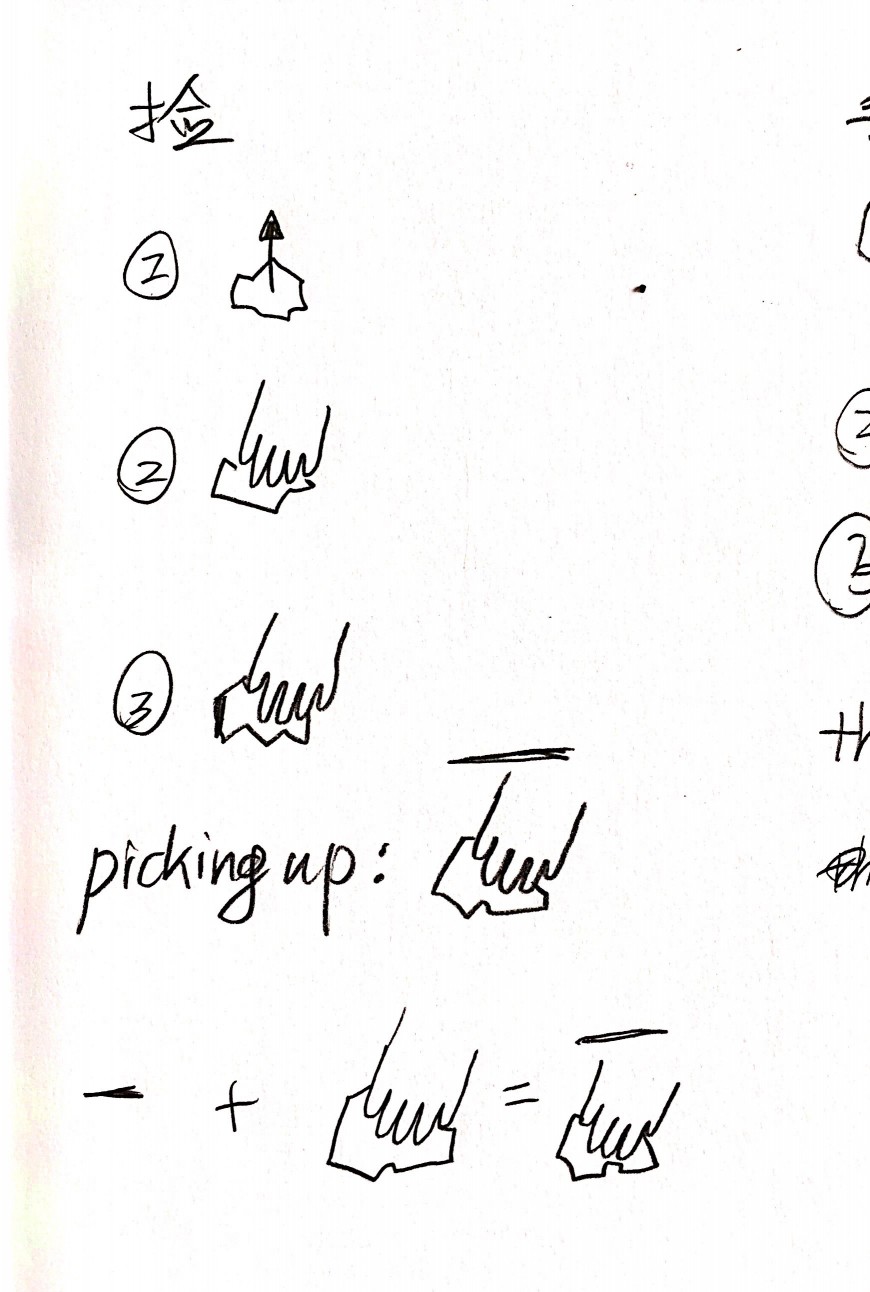 捡
①
②
③
picking up:
— + =